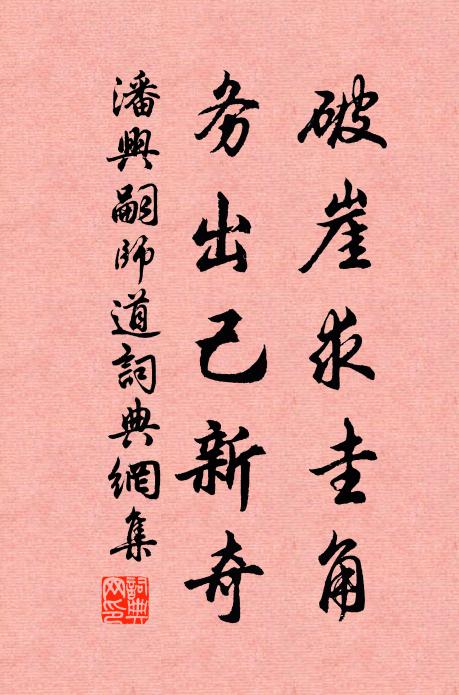 破崖求圭角
务出己新奇
潘興嗣師道詞典網集
詞典网印